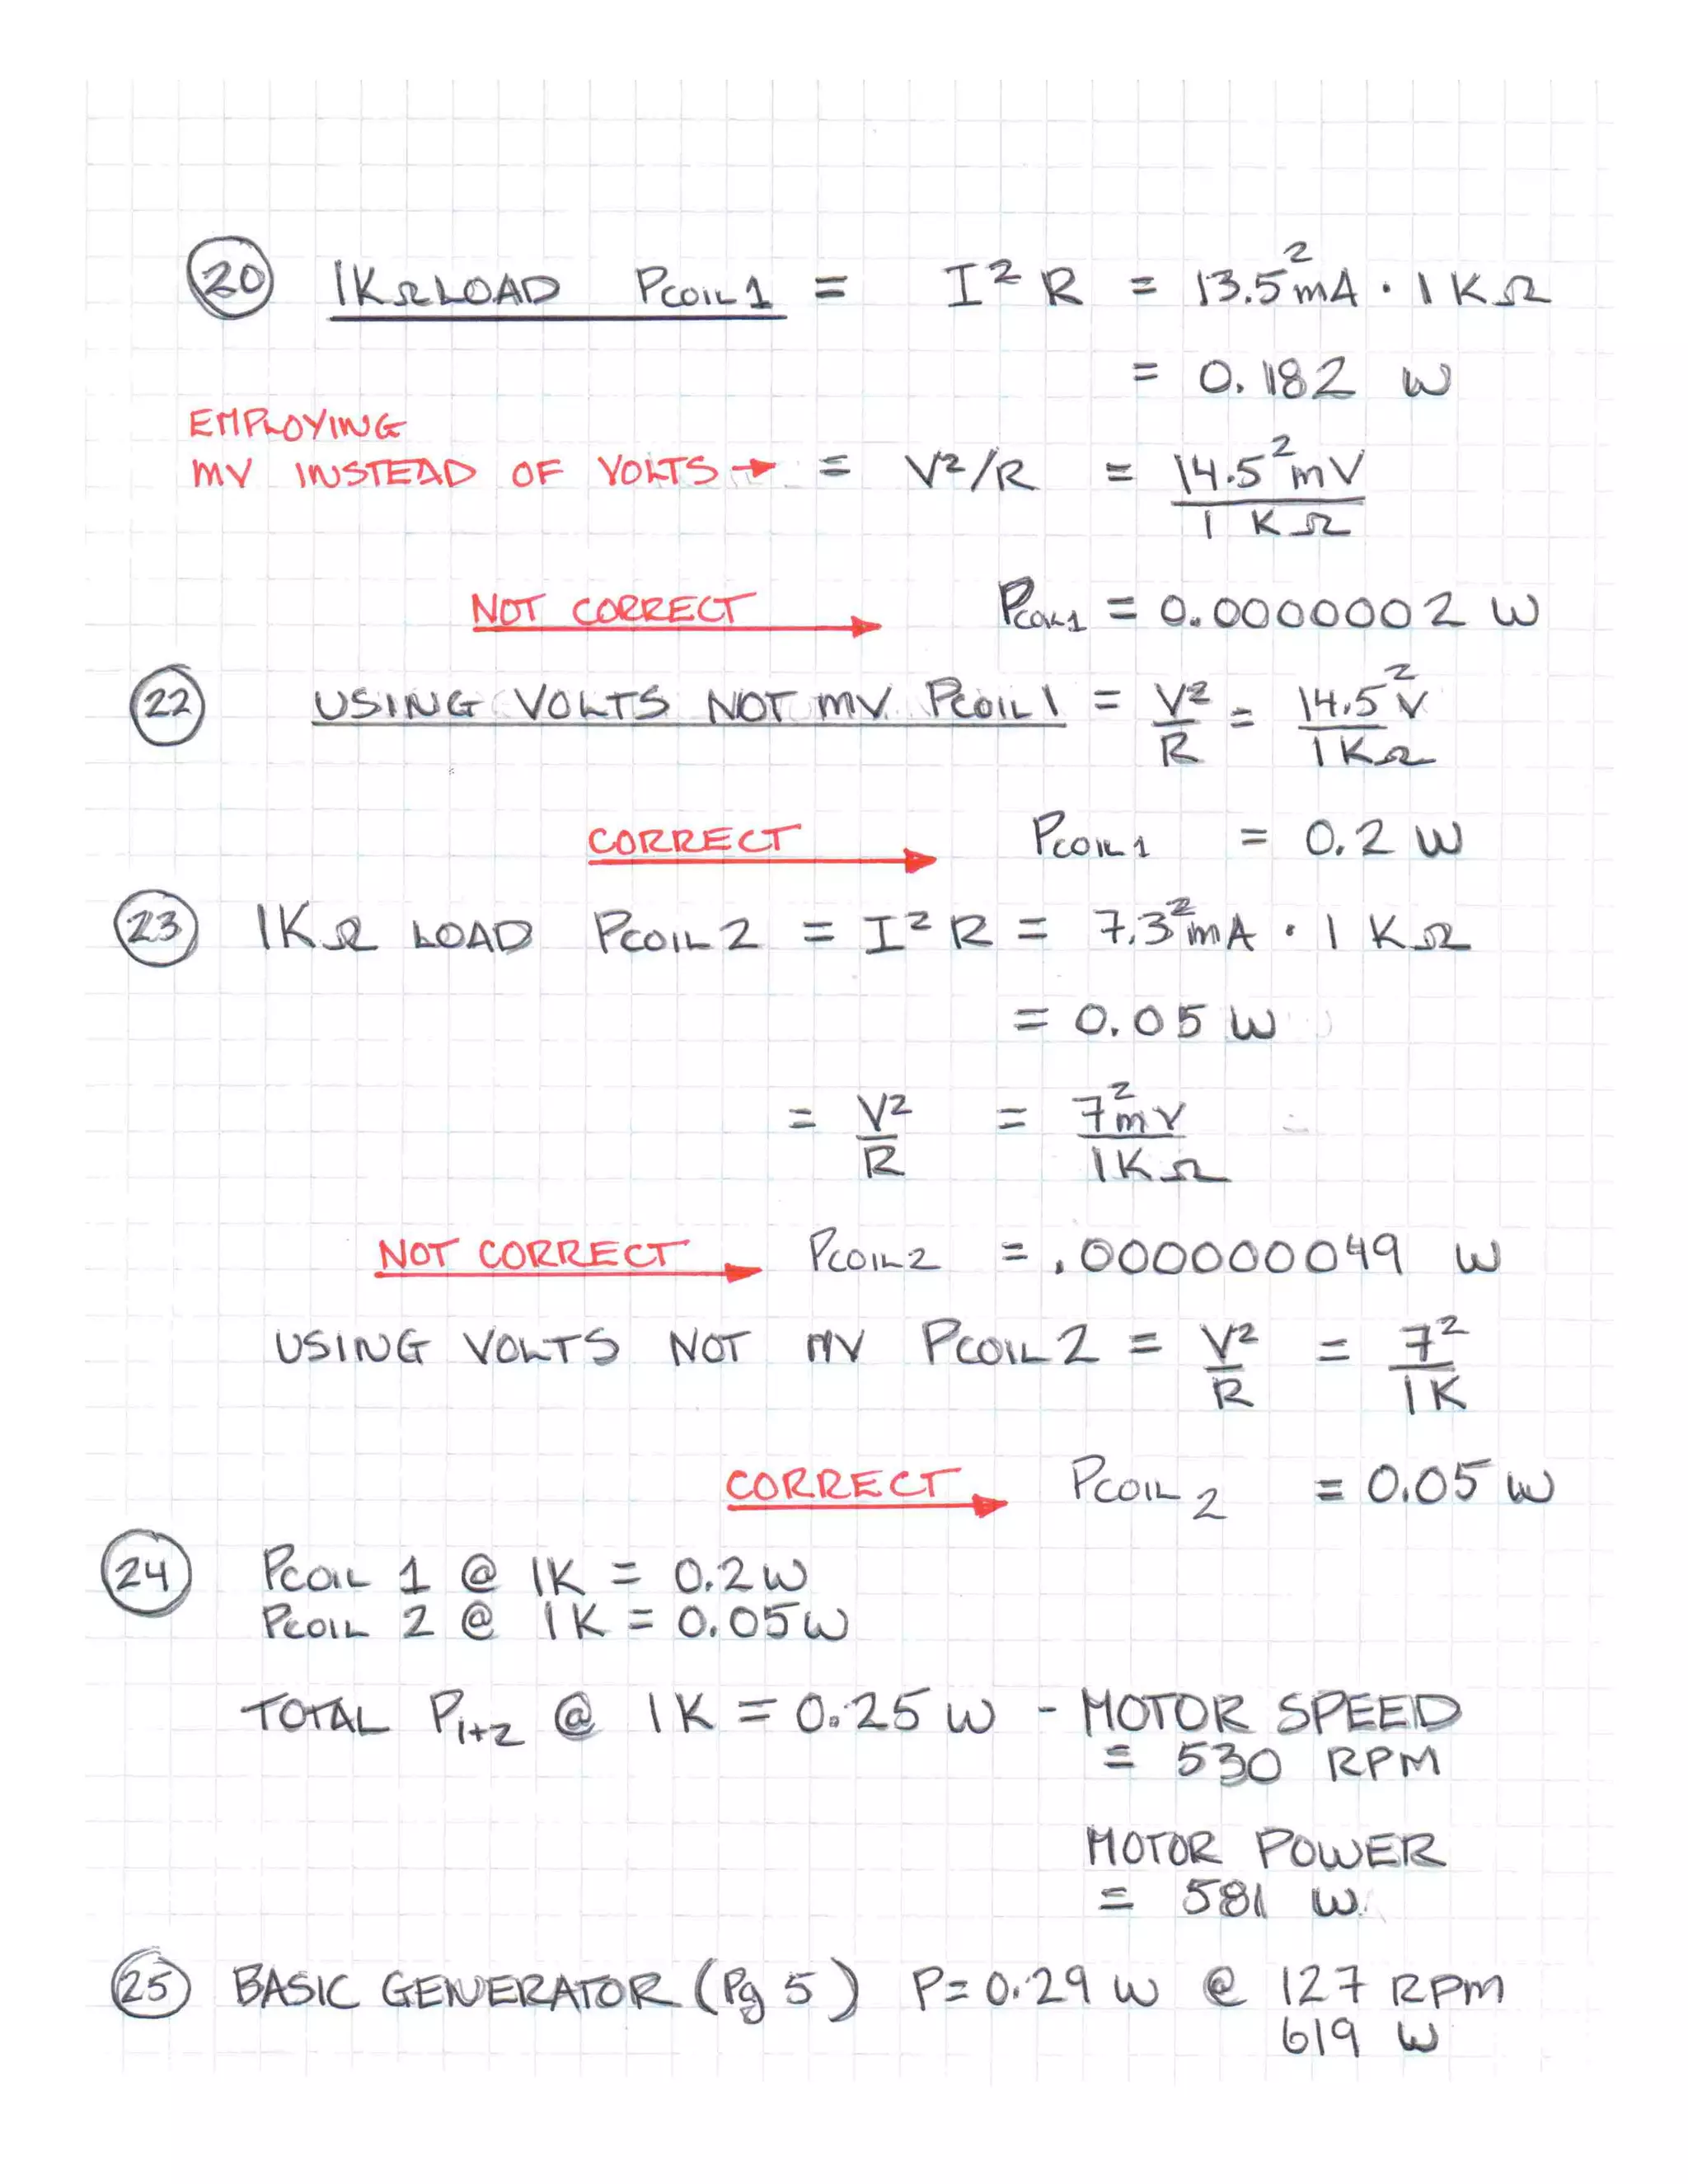 20 1KΩ LOAD PCOIL1 = I² R = 13.5²mA · 1 KΩ
= 0.182 W
EMPLOYING
MV INSTEAD OF VOLTS → = V²/R = 14.5²mV
1 KΩ
NOT CORRECT → PCOIL1 = 0.0000002 W
22 USING VOLTS NOT MV PCOIL 1 = V²/R = 14.5²V/1KΩ
CORRECT → PCOIL1 = 0.2 W
23 1KΩ LOAD PCOIL 2 = I² R = 7.3²mA · 1 KΩ
= 0.05 W
= V²/R = 7²mV/1KΩ
NOT CORRECT → PCOIL2 = .000000049 W
USING VOLTS NOT MV PCOIL 2 = V²/R = 7²/1K
CORRECT → PCOIL 2 = 0.05 W
24 PCOIL 1 @ 1K = 0.2W
PCOIL 2 @ 1K = 0.05W
TOTAL P1+2 @ 1K = 0.25 W - MOTOR SPEED
= 530 RPM
MOTOR POWER
= 581 W
25 BASIC GENERATOR (Pg 5) P=0.29 W @ 127 RPM
619 W